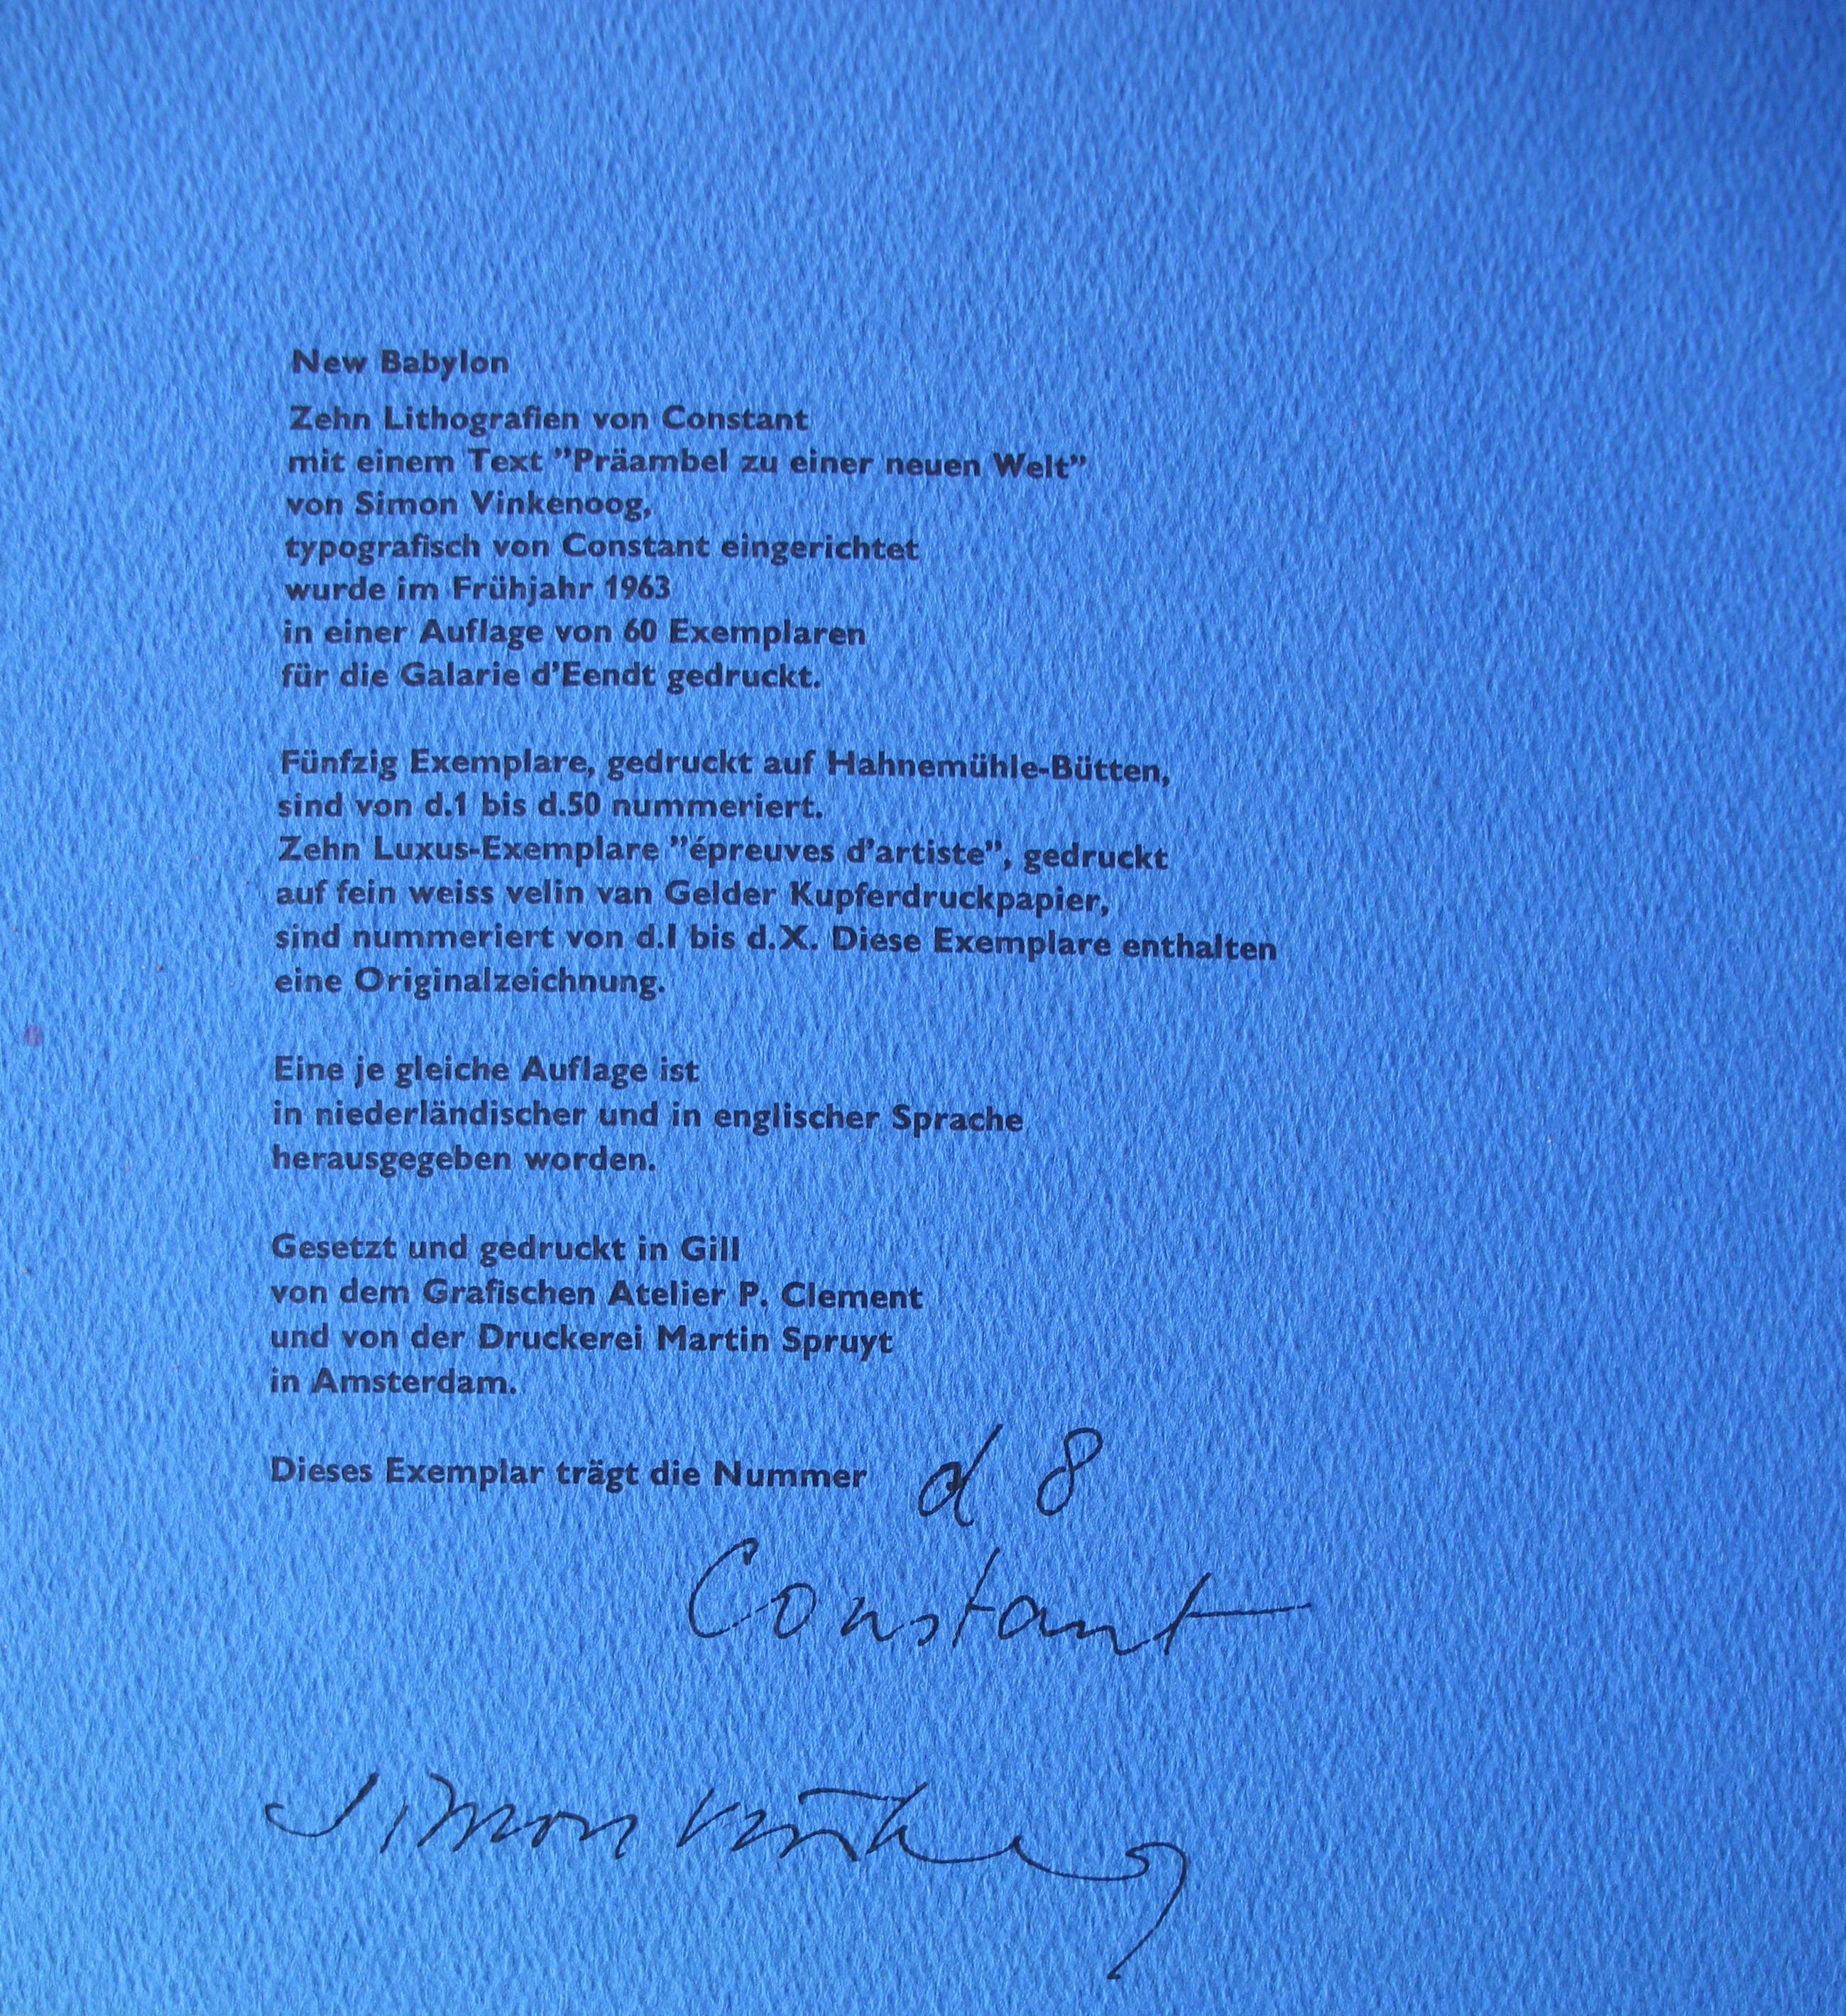 New Babylon
Zehn Lithografien von Constant
mit einem Text ”Präambel zu einer neuen Welt”
von Simon Vinkenoog,
typografisch von Constant eingerichtet
wurde im Frühjahr 1963
in einer Auflage von 60 Exemplaren
für die Galarie d’Eendt gedruckt.
Fünfzig Exemplare, gedruckt auf Hahnemühle-Bütten,
sind von d.1 bis d.50 nummeriert.
Zehn Luxus-Exemplare ”épreuves d’artiste”, gedruckt
auf fein weiss velin van Gelder Kupferdruckpapier,
sind nummeriert von d.I bis d.X. Diese Exemplare enthalten
eine Originalzeichnung.
Eine je gleiche Auflage ist
in niederländischer und in englischer Sprache
herausgegeben worden.
Gesetzt und gedruckt in Gill
von dem Grafischen Atelier P. Clement
und von der Druckerei Martin Spruyt
in Amsterdam.
Dieses Exemplar trägt die Nummer d 8
Constant
Simon Vinkenoog